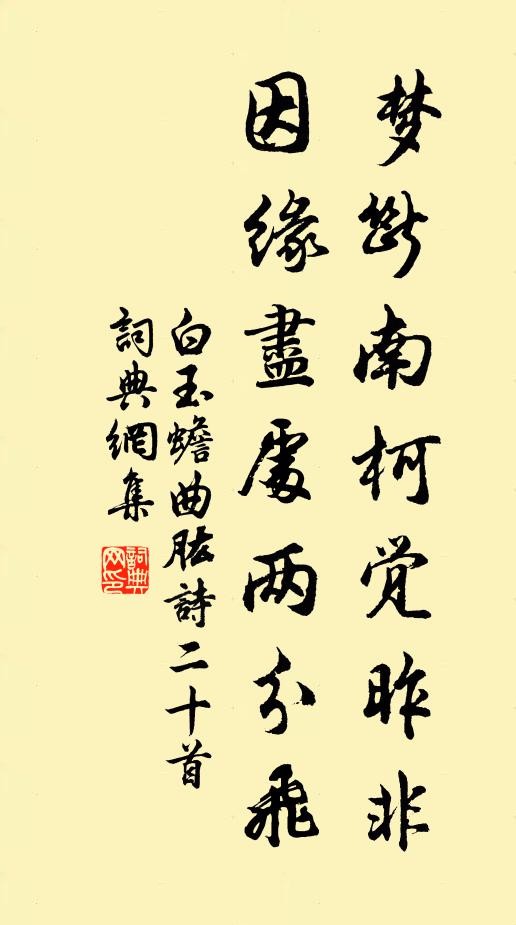 梦断南柯觉昨非
因缘盡處两分飛
白玉蟾曲肱詩二十首
詞典網集
詞典网印